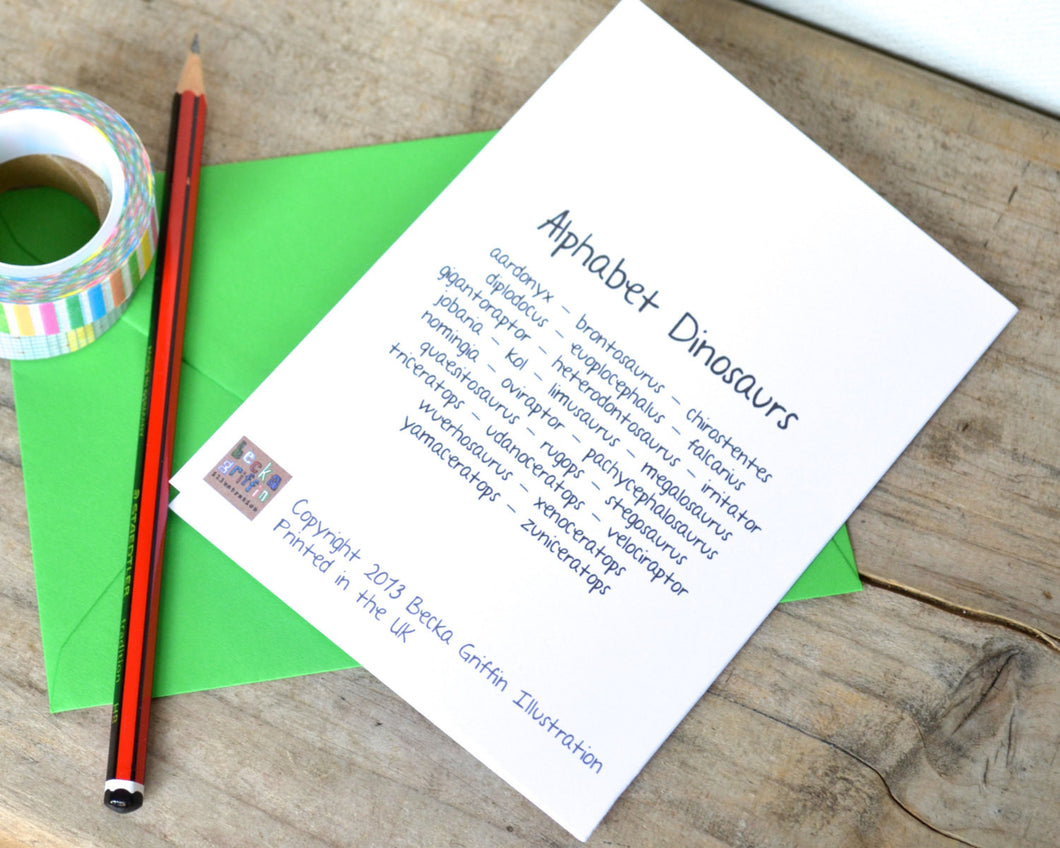 Alphabet Dinosaurs
aardonyx – brontosaurus – chirostentes
diplodocus – euoplocephalus – falcarius
gigantoraptor – heterodontosaurus – irritator
jobaria – kol – limusaurus – megalosaurus
nomingia – oviraptor – pachycephalosaurus
quaesitosaurus – rugops – stegosaurus
triceratops – udanoceratops – velociraptor
wuerhosaurus – xenoceratops
yamaceratops – zuniceratops
becka
griffin
illustration
Copyright 2013 Becka Griffin Illustration
Printed in the UK
STAEDTLER tradition HB